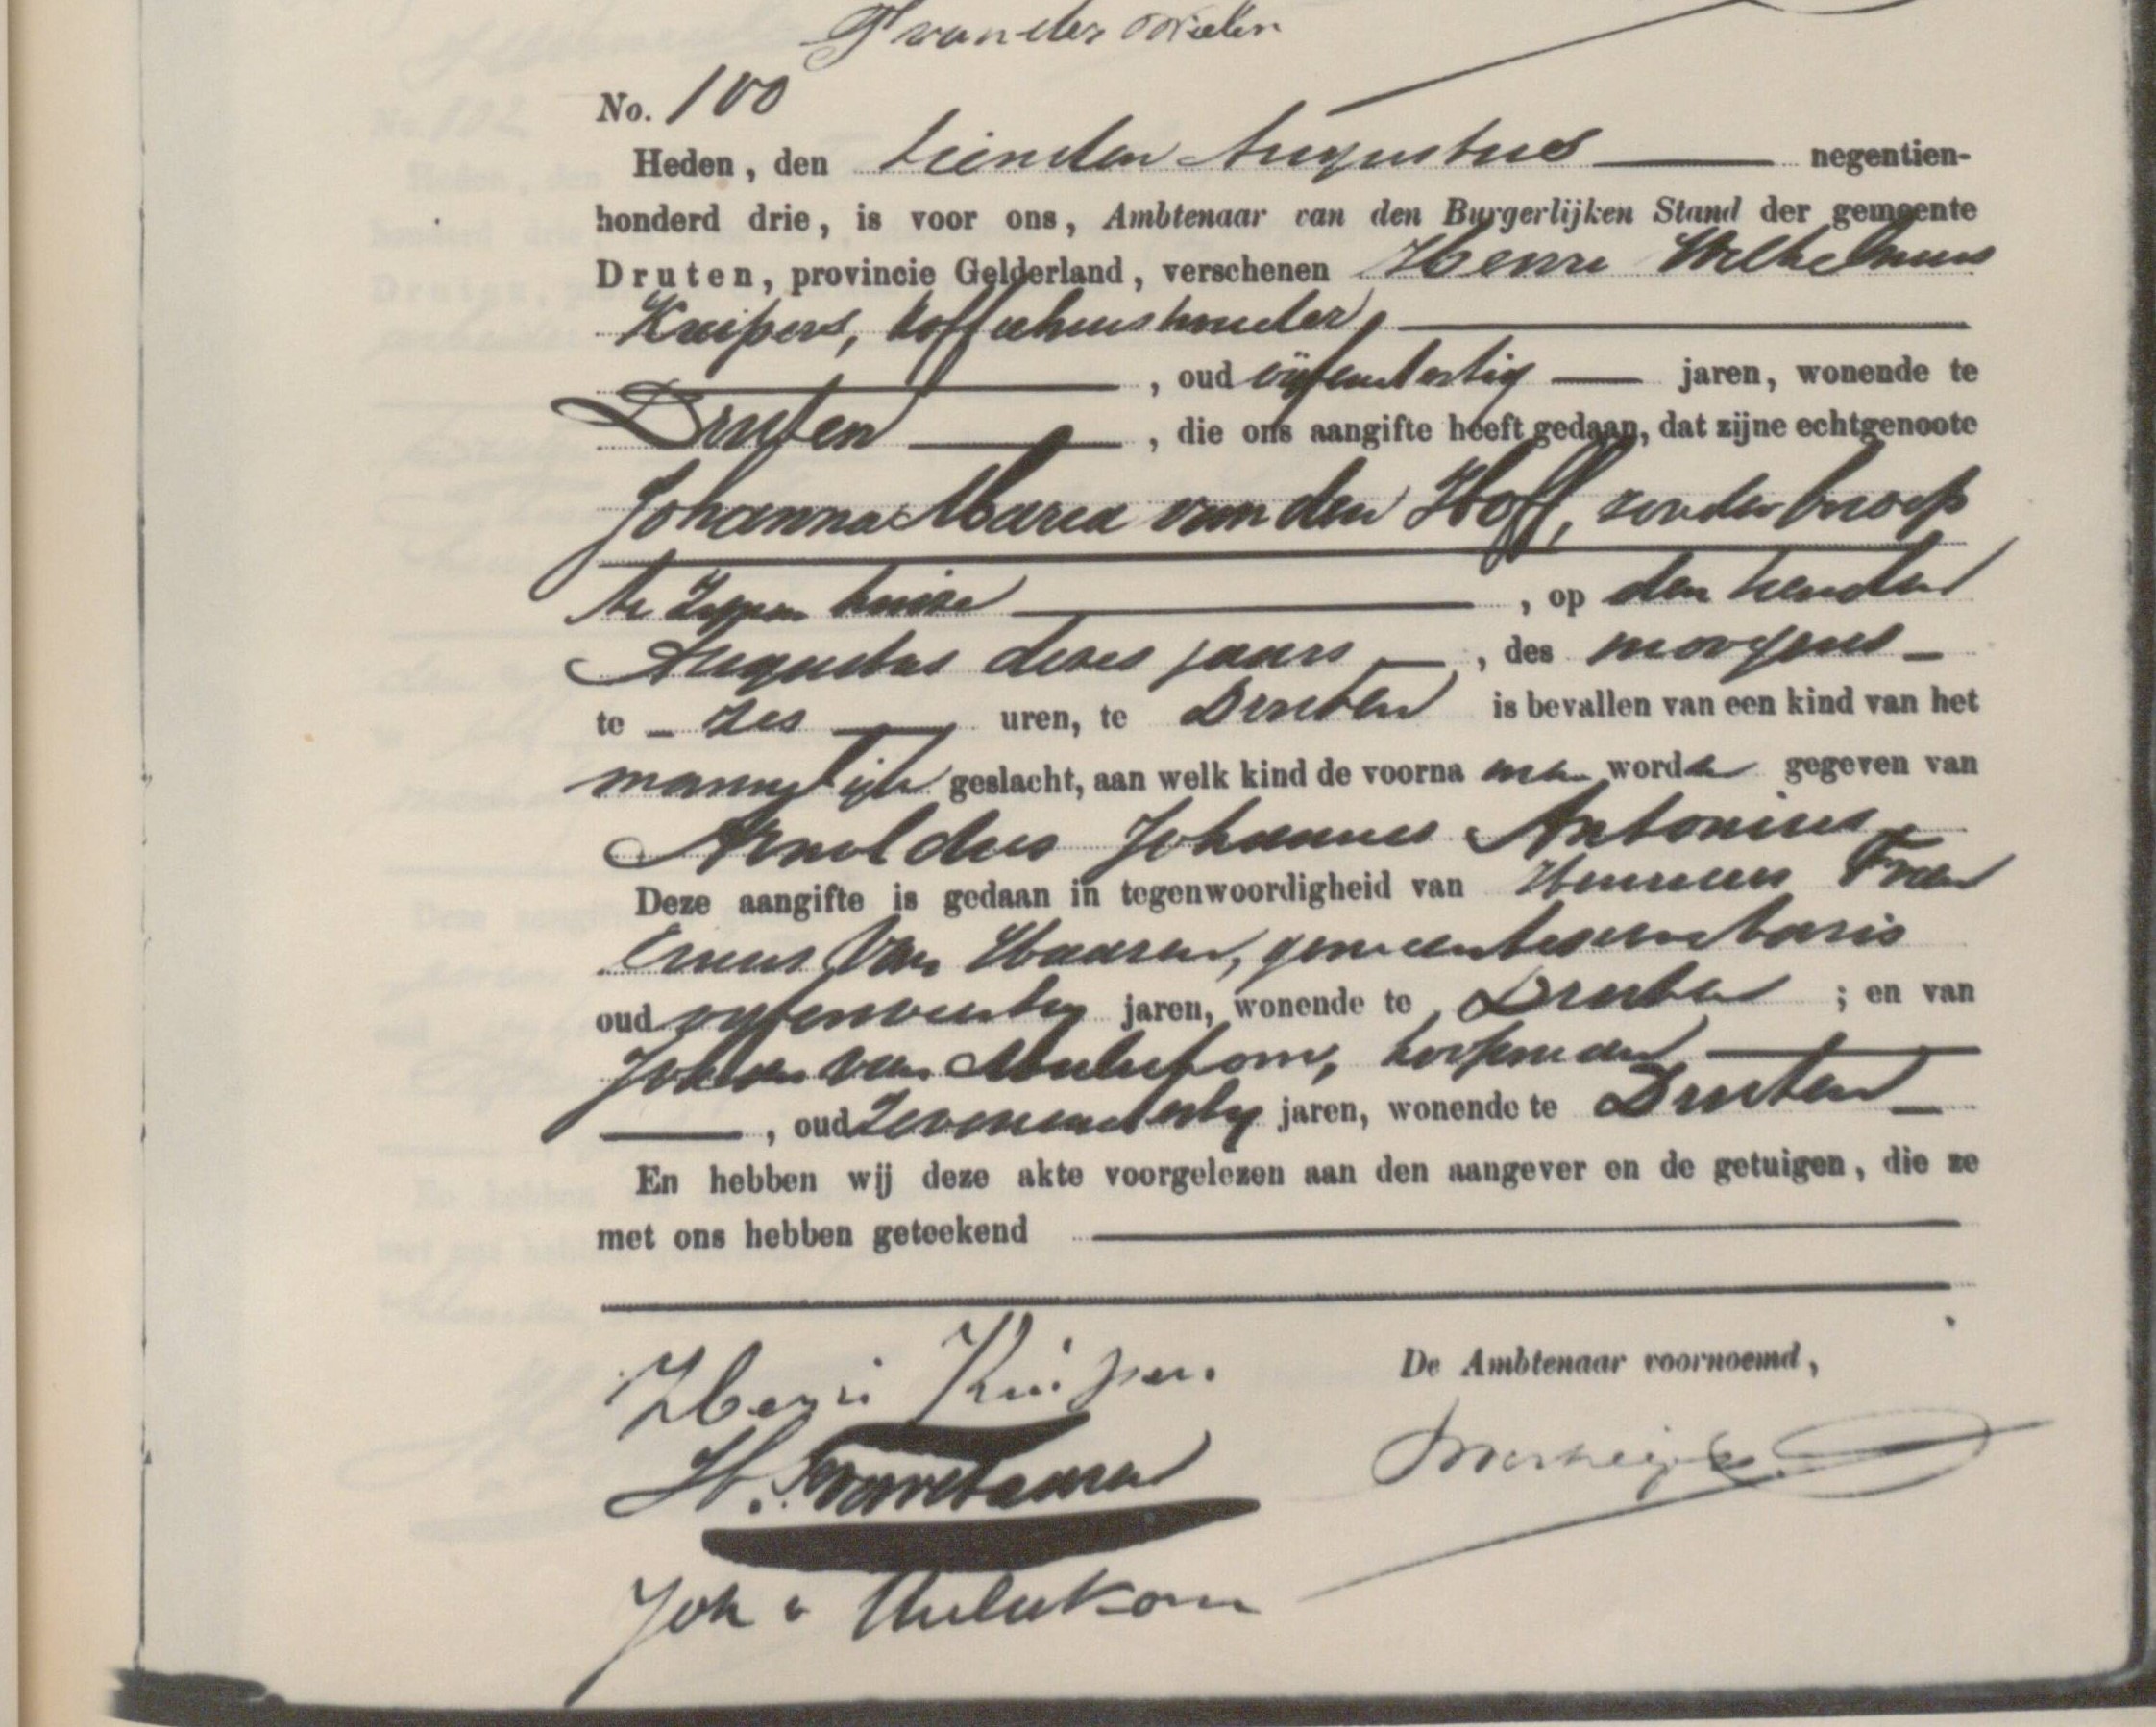 van der Wielen
No. 100
Heden, den tienden Augustus negentien-
honderd drie, is voor ons, Ambtenaar van den Burgerlijken Stand der gemeente
Druten, provincie Gelderland, verschenen Henri Wilhelmus
Kuipers, koffiehuishouder,
, oud vijfendertig jaren, wonende te
Druten , die ons aangifte heeft gedaan, dat zijne echtgenoote
Johanna Maria van den Hoff, zonder beroep
te zijnen huize , op den tienden
Augustus dezes jaars , des morgens
te zes uren, te Druten is bevallen van een kind van het
mannelijk geslacht, aan welk kind de voorna men worden gegeven van
Arnoldus Johannes Antonius
Deze aangifte is gedaan in tegenwoordigheid van Henricus Fran
ciscus van Haaren, gemeentesecretaris
oud jaren, wonende te Druten ; en van
Johan van Mulukom, koopman
, oud zevenendertig jaren, wonende te Druten
En hebben wij deze akte voorgelezen aan den aangever en de getuigen, die ze
met ons hebben geteekend
Henri Kuipers.
De Ambtenaar voornoemd,
H. F. van Haaren
Joh v Mulukom